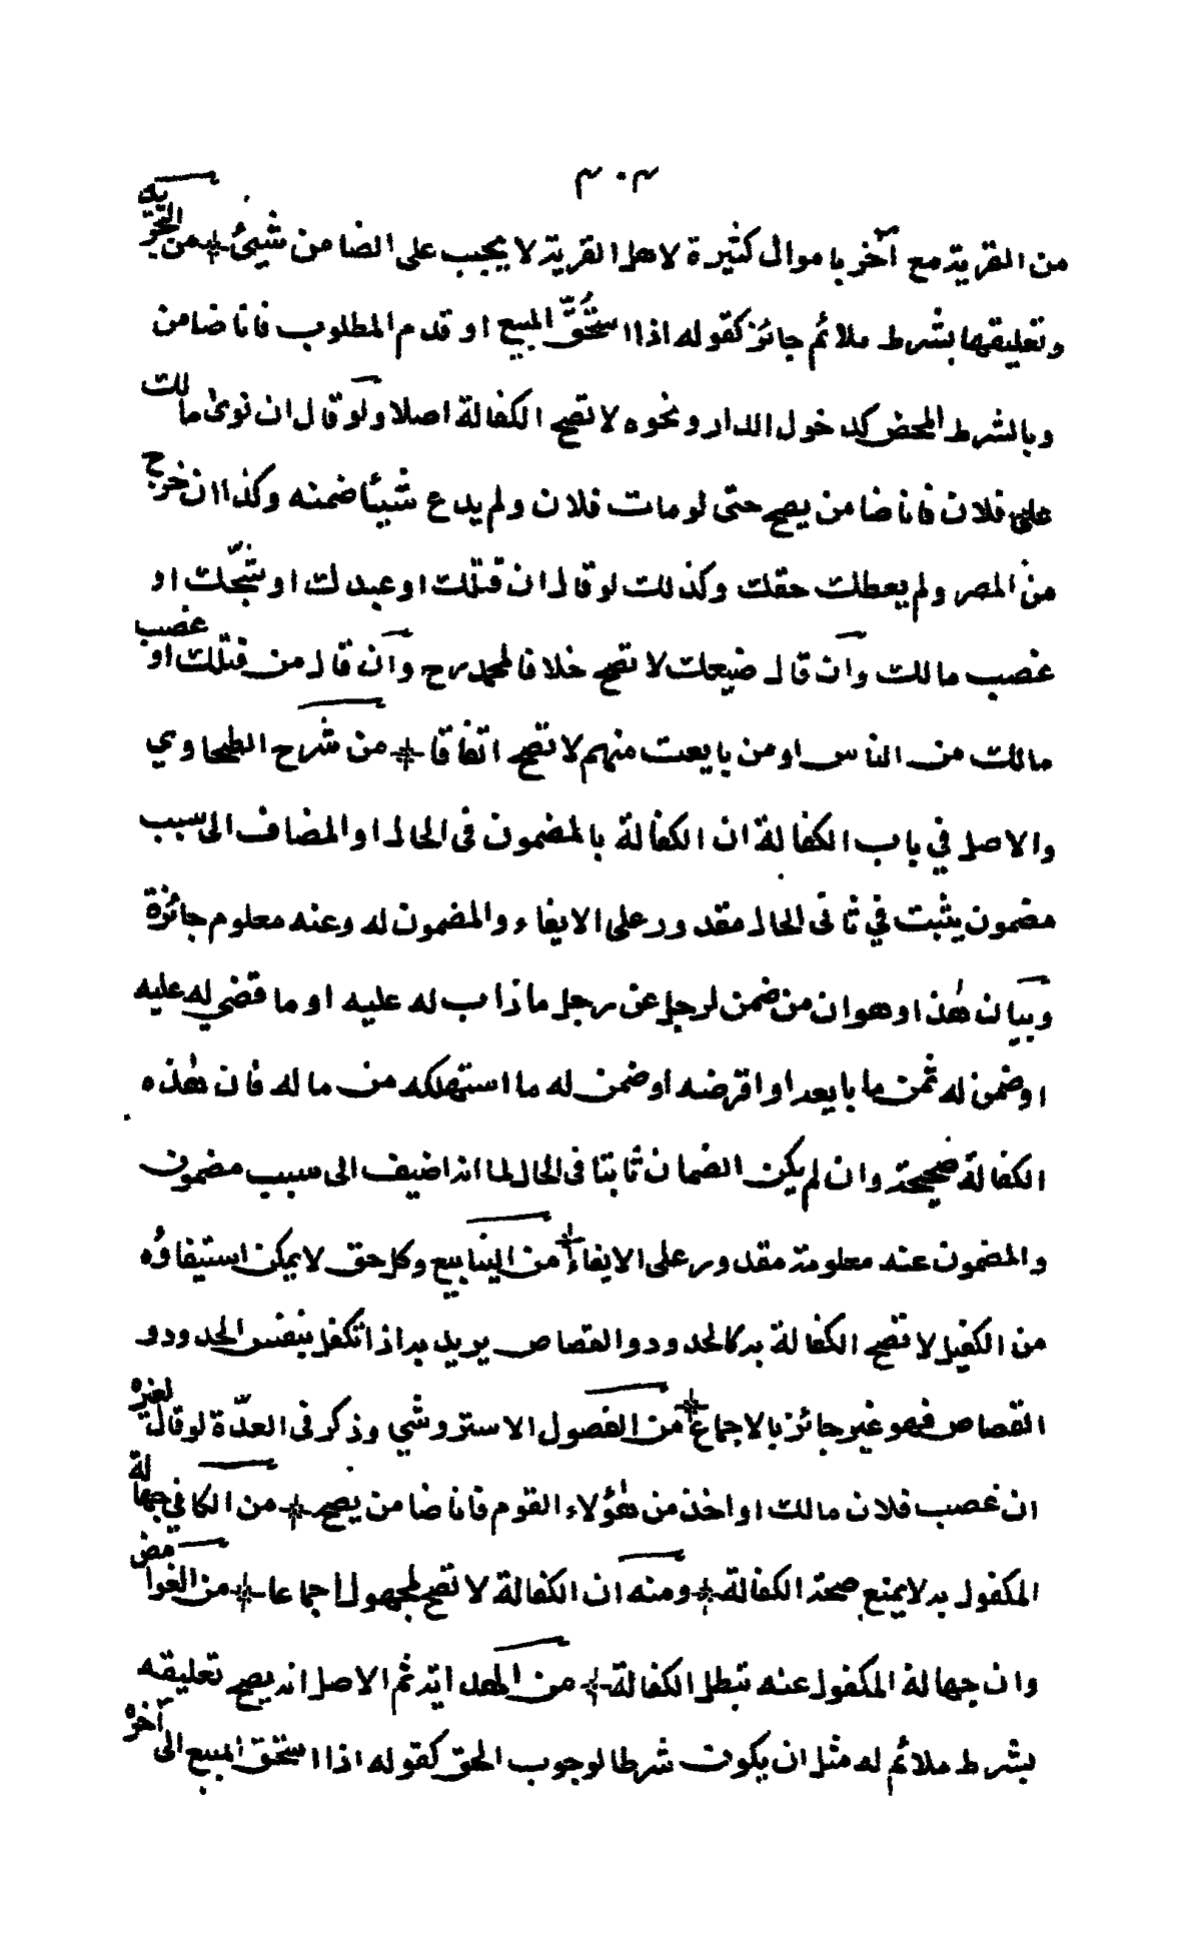 ٣٠٣
من القرية مع آخر باموال كثيرة لاهل القرية لا يجب على الضامن شيئ من التجريد
وتعليقها بشرط ملائم جائز كقوله اذا استحق المبيع او قدم المطلوب فانا ضامن
وبالشرط المحض كدخول الدار ونحوه لا تصح الكفالة اصلا ولو قال ان توى مالك
على فلان فانا ضامن يصح حتى لو مات فلان ولم يدع شيئا ضمنه وكذا ان خرج
من المصر ولم يعطك حقك وكذلك لو قال ان قتلك او عبدك او شجّك او
غصب مالك وان قال ضيعك لا تصح خلافا لمحمد رح وان قال من قتلك او غصب
مالك من الناس او من بايعت منهم لا تصح اتفاقا من شرح الطحاوي
والاصل في باب الكفالة ان الكفالة بالمضمون فى الحال او المضاف الى سبب
مضمون يثبت في ثانى الحال مقدور على الايفاء والمضمون له وعنه معلوم جائزة
وبيان هذا وهو ان من ضمن لرجل عن رجل ما ذاب له عليه او ما قضي له عليه
او ضمن له ثمن ما بايعه او اقرضه او ضمن له ما استهلكه من ماله فان هذه
الكفالة صحيحة وان لم يكن الضمان ثابتا فى الحال لما انه اضيف الى سبب مضمون
والمضمون عنه معلومة مقدور على الايفاء من الينابيع وكل حق لا يمكن استيفاؤه
من الكفيل لا تصح الكفالة به كالحدود والقصاص يريد به اذا تكفل بنفس الحدود و
القصاص فهو غير جائز بالاجماع من الفصول الاستروشي وذكر فى العدّة لو قال لغيره
ان غصب فلان مالك او اخذ من هؤلاء القوم فانا ضامن يصح من الكافي جهالة
المكفول به لا يمنع صحة الكفالة ومنه ان الكفالة لا تصح لمجهول اجماعا من الغوامض
وان جهالة المكفول عنه تبطل الكفالة من الهداية ثم الاصل انه يصح تعليقه
بشرط ملائم له مثل ان يكون شرطا لوجوب الحق كقوله اذا استحق المبيع الى آخره